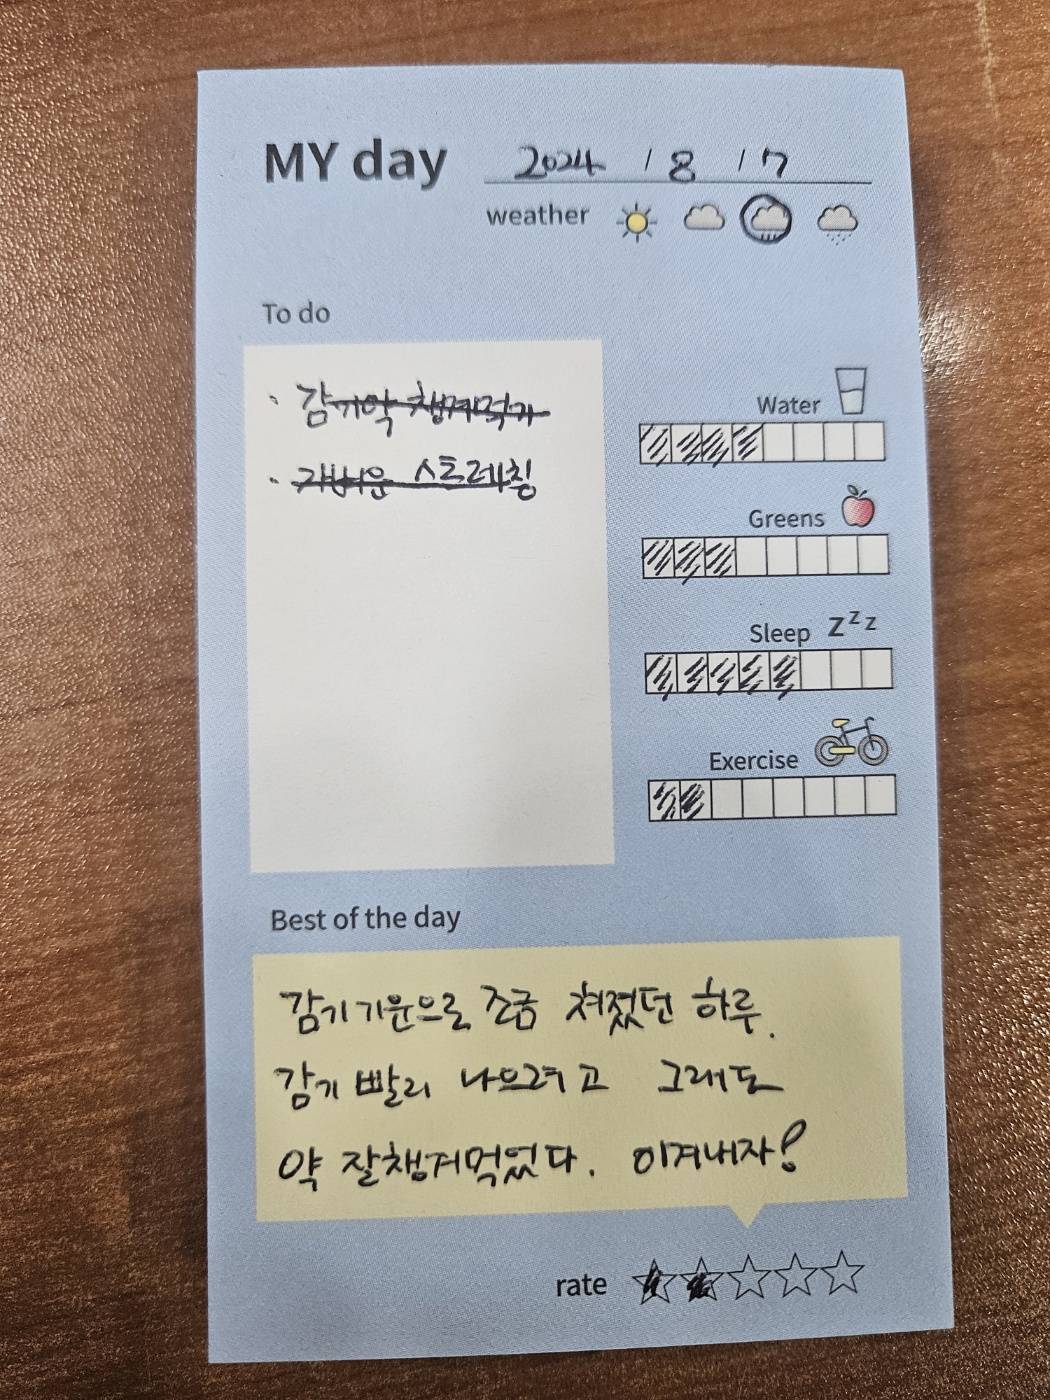 MY day 2024 / 8 / 7
weather
To do
· 감기약 챙겨먹기
· 가벼운 스트레칭
Water
Greens
Sleep zzz
Exercise
Best of the day
감기기운으로 조금 쳐졌던 하루.
감기 빨리 나으려고 그래도
약 잘챙겨먹었다. 이겨내자!
rate